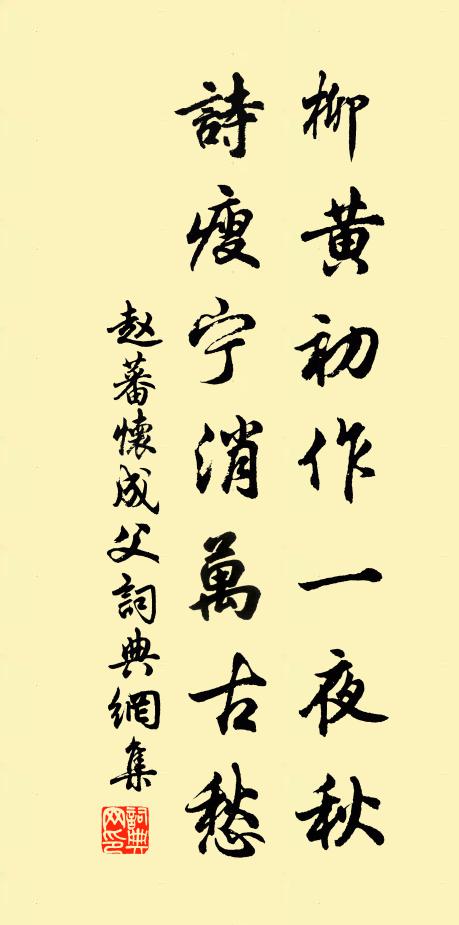 柳黄初作一夜秋
詩瘦宁消萬古愁
赵蕃懷成父詞典網集
詞典网印